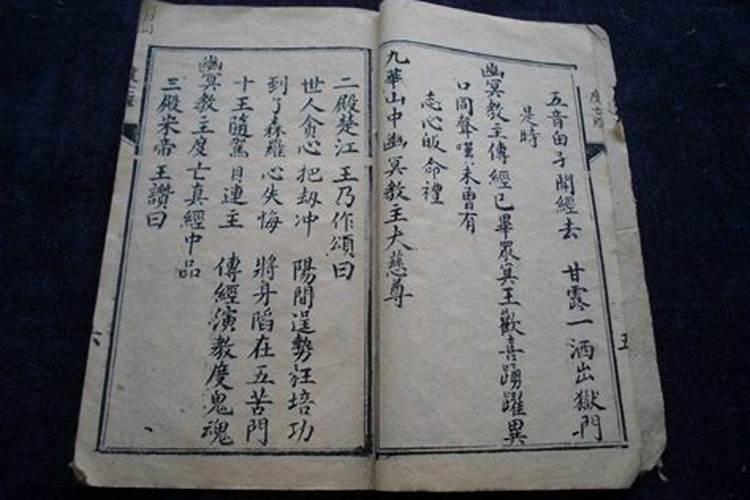 五音男子聞經去　甘露一洒出獄門
是時
幽冥教主傳經已畢眾冥王歡喜踴躍異
口同聲嘆未曾有
志心皈命禮
九華山中幽冥教主大慈尊
二殿楚江王乃作頌曰
世人貪心把劫冲　陽間逞勢枉培功
到了森羅心失悔　將身陷在五苦門
十王隨駕目連主　傳經演教度鬼魂
幽冥教主度亡真經中品
三殿宋帝王讚曰
五
六